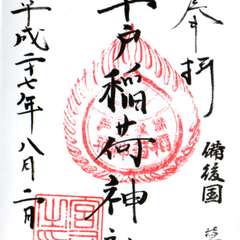 奉拝
備後国
草戸稲荷神社
平成二十七年八月二日